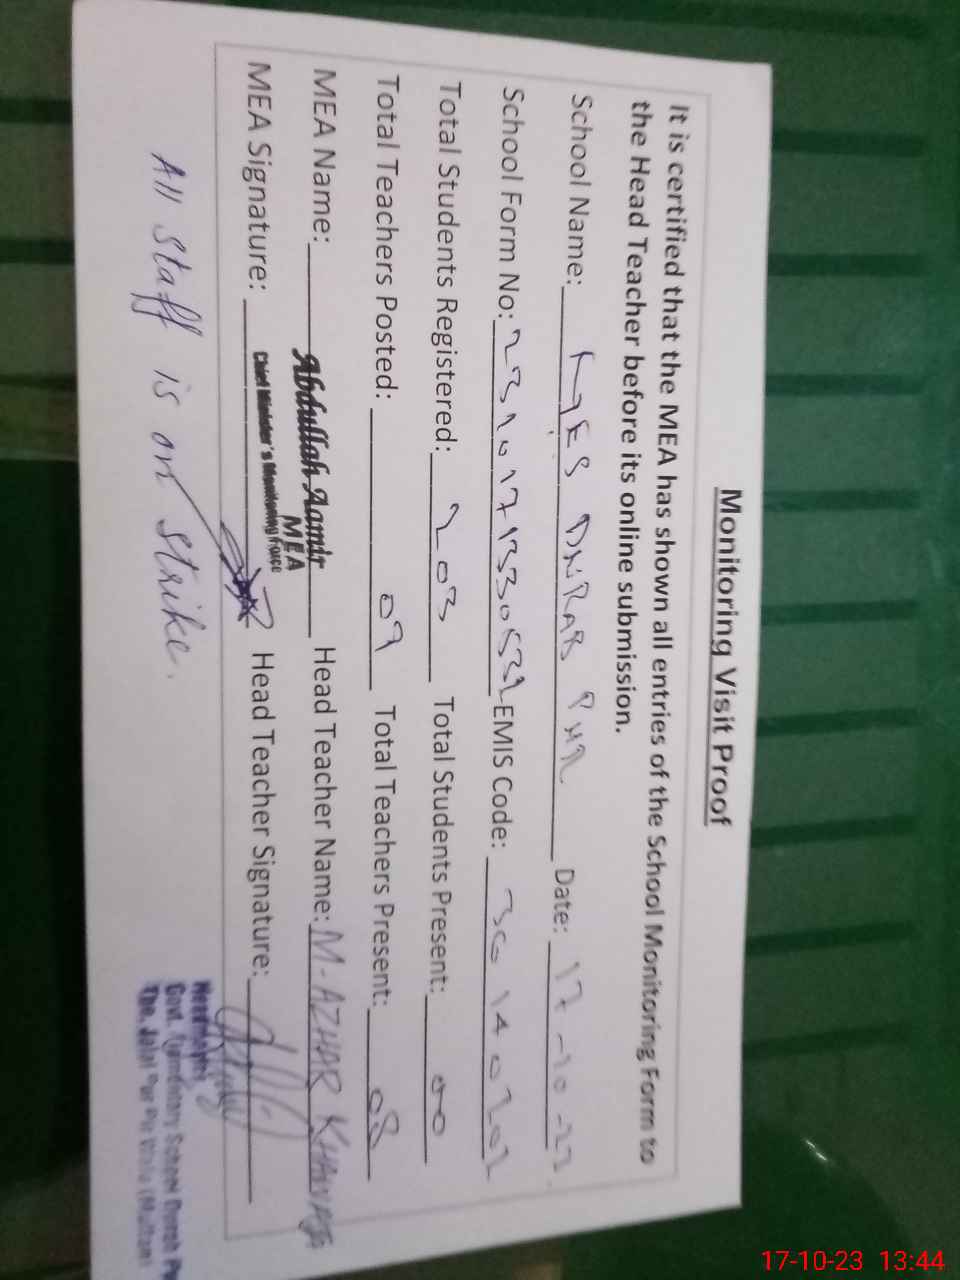 Monitoring Visit Proof
It is certified that the MEA has shown all entries of the School Monitoring Form to
the Head Teacher before its online submission.
School Name: GES DNRAB PHR Date: 17-10-23
School Form No: EMIS Code:
Total Students Registered: 203 Total Students Present: 00
Total Teachers Posted: 09 Total Teachers Present: 08
MEA Name: Abdullah Aamir Head Teacher Name: M-AZHAR
MEA
Chief Minister's Monitoring Force
MEA Signature: Head Teacher Signature:
All staff is on strike.
Govt. Elementary School
The. Jalal Pur Pir Wala (Multan)
17-10-23 13:44